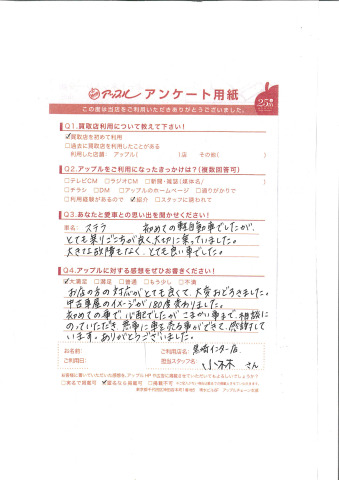 アップル アンケート用紙
この度は当店をご利用いただきありがとうございました。
25周年
Q1.買取店利用について教えて下さい!
☑買取店を初めて利用
□過去に買取店を利用したことがある
利用した店舗: アップル( )店 その他( )
Q2.アップルをご利用になったきっかけは?(複数回答可)
□テレビCM □ラジオCM □新聞・雑誌(媒体名/ )
□チラシ □DM □アップルのホームページ □通りがかりで
□利用経験があるので ☑紹介 □スタッフに誘われて
Q3.あなたと愛車との思い出を聞かせください!
車名: ステラ 初めての軽自動車でしたが、
とても乗りごこちが良く、大切に乗っていました。
大きな故障もなく、とても良い車でした。
Q4.アップルに対する感想をぜひお書きください!
☑大満足 □満足 □普通 □もう少し □不満
お店の方の対応がとても良くて、大変おどろきました。
中古車屋のイメージが180度変わりました。
初めての事で、心配でしたが、こまかい事まで、相談に
のっていただき、無事に車を売る事ができて、感謝して
います。ありがとうございました。
お名前: ご利用店名: 黒崎インター店
ご利用日: 担当スタッフ名: 小林 さん
お客様に書いていただいた感想を、アップルHPや広告に掲載させていただいてもよろしいでしょうか?
□実名で掲載可 ☑匿名なら掲載可 □掲載不可